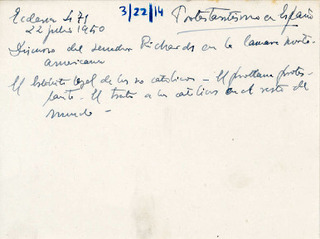 Ecclesia 471 3/22/14 Protestantismo en España
22 julio 1950
Discurso del senador Richards en la camara norte-
americana
El estatuto legal de los no católicos - El problema protes-
tante - El trato a los católicos en el resto del
mundo -